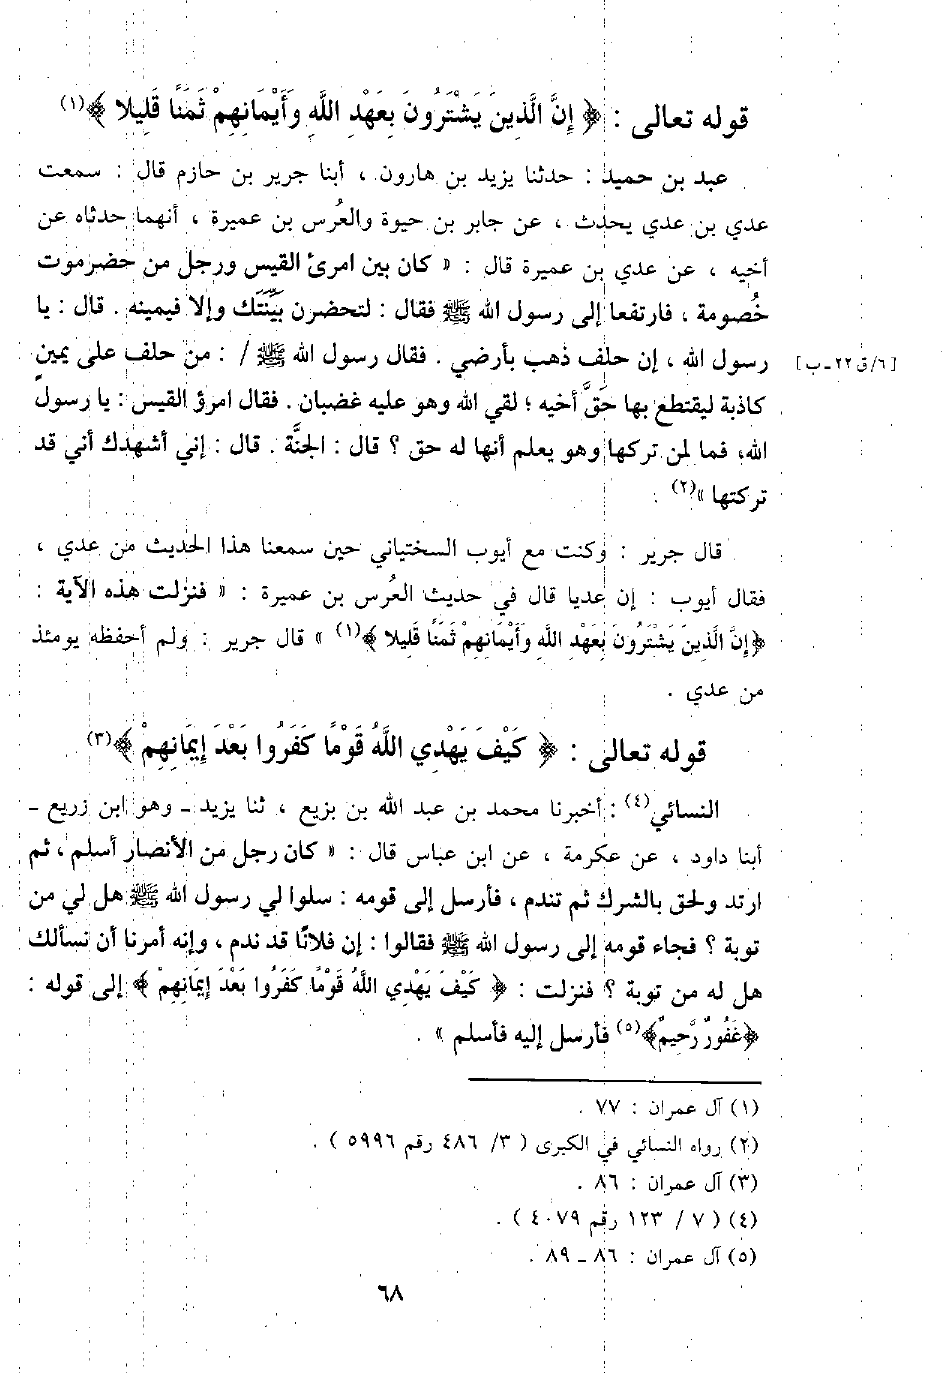 قوله تعالى : ﴿ إِنَّ الَّذِينَ يَشْتَرُونَ بِعَهْدِ اللَّهِ وَأَيْمَانِهِمْ ثَمَنًا قَلِيلا ﴾(١)
عبد بن حميد : حدثنا يزيد بن هارون ، أبنا جرير بن حازم قال : سمعت
عدي بن عدي يحدث ، عن جابر بن حيوة والعُرس بن عميرة ، أنهما حدثاه عن
أخيه ، عن عدي بن عميرة قال : « كان بين امرئ القيس ورجل من حضرموت
خُصومة ، فارتفعا إلى رسول الله ﷺ فقال : لتحضرن بيِّنَتَك وإلا فيمينه . قال : يا
رسول الله ، إن حلف ذهب بأرضي . فقال رسول الله ﷺ / : من حلف على يمين [٦/ق٢٢-ب]
كاذبة ليقتطع بها حَقَّ أخيه ؛ لقي الله وهو عليه غضبان . فقال امرؤ القيس : يا رسول
الله، فما لمن تركها وهو يعلم أنها له حق ؟ قال : الجنَّة . قال : إني أشهدك أني قد
تركتها »(٢) .
قال جرير : وكنت مع أيوب السختياني حين سمعنا هذا الحديث من عدي ،
فقال أيوب : إن عديا قال في حديث العُرس بن عميرة : « فنزلت هذه الآية :
﴿إِنَّ الَّذِينَ يَشْتَرُونَ بِعَهْدِ اللَّهِ وَأَيْمَانِهِمْ ثَمَنًا قَلِيلا ﴾(١) » قال جرير : ولم أحفظه يومئذ
من عدي .
قوله تعالى : ﴿ كَيْفَ يَهْدِي اللَّهُ قَوْمًا كَفَرُوا بَعْدَ إِيمَانِهِمْ ﴾(٣)
النسائي(٤) : أخبرنا محمد بن عبد الله بن بزيع ، ثنا يزيد ـ وهو ابن زريع ـ
أبنا داود ، عن عكرمة ، عن ابن عباس قال : « كان رجل من الأنصار أسلم ، ثم
ارتد ولحق بالشرك ثم تندم ، فأرسل إلى قومه : سلوا لي رسول الله ﷺ هل لي من
توبة ؟ فجاء قومه إلى رسول الله ﷺ فقالوا : إن فلانًا قد ندم ، وإنه أمرنا أن نسألك
هل له من توبة ؟ فنزلت : ﴿ كَيْفَ يَهْدِي اللَّهُ قَوْمًا كَفَرُوا بَعْدَ إِيمَانِهِمْ ﴾ إلى قوله :
﴿غَفُورٌ رَّحِيمٌ﴾(٥) فأرسل إليه فأسلم » .
(١) آل عمران : ٧٧ .
(٢) رواه النسائي في الكبرى ( ٣/ ٤٨٦ رقم ٥٩٩٦ ) .
(٣) آل عمران : ٨٦ .
(٤) ( ٧ / ١٢٣ رقم ٤٠٧٩ ) .
(٥) آل عمران : ٨٦ ـ ٨٩ .
٦٨